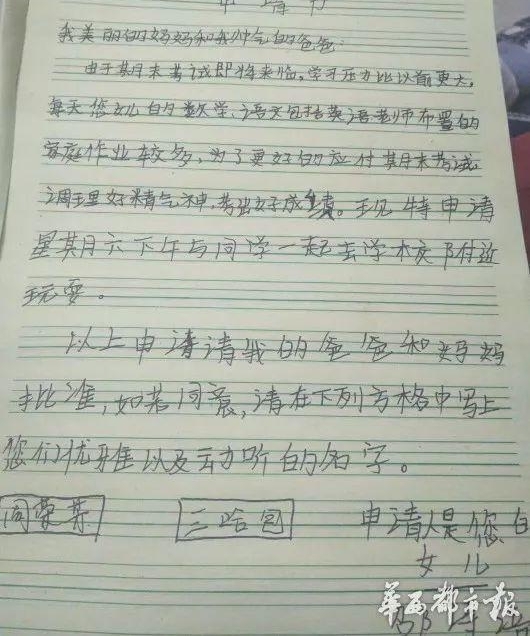 申请书
我美丽的妈妈和我帅气的爸爸:
由于期末考试即将来临,学习压力比以前更大,
每天您女儿的数学、语文包括英语老师布置的
家庭作业较多,为了更好的应付期末考试,
调理好精气神,考出好成绩。现特申请
星期六下午与同学一起去学校附近
玩耍。
以上申请请我的爸爸和妈妈
批准,如若同意,请在下列方格中写上
您们优雅以及动听的名字。
申请人是您的
女儿
华西都市报